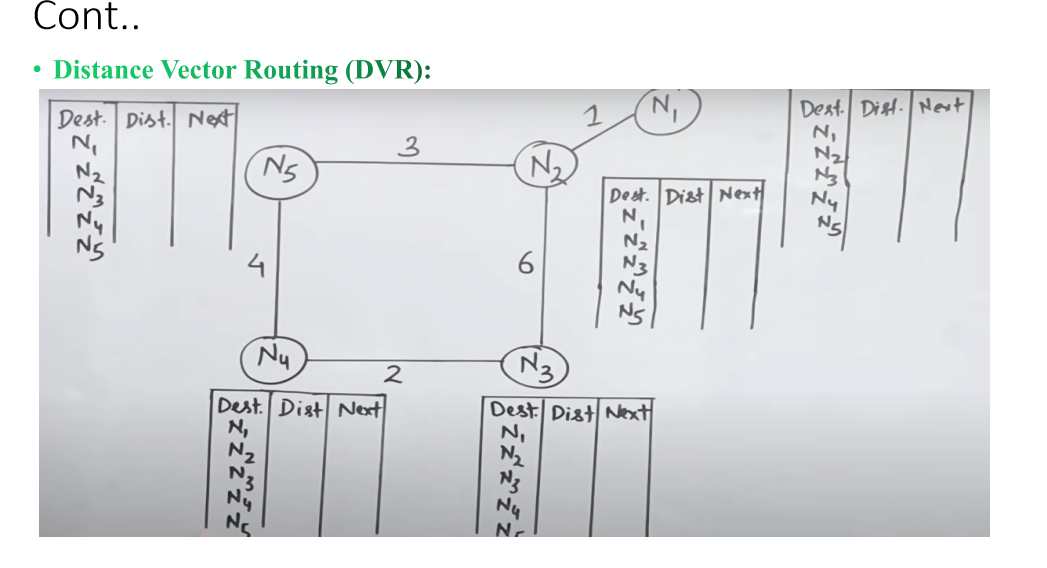 Cont..
• Distance Vector Routing (DVR):
Dest. Dist. Next
N1
N2
N3
N4
N5
N5
3
N2
1
N1
4
6
N4
2
N3
Dest. Dist. Next
N1
N2
N3
N4
N5
Dest. Dist Next
N1
N2
N3
N4
N5
Dest. Dist Next
N1
N2
N3
N4
N5
Dest. Dist Next
N1
N2
N3
N4
N5